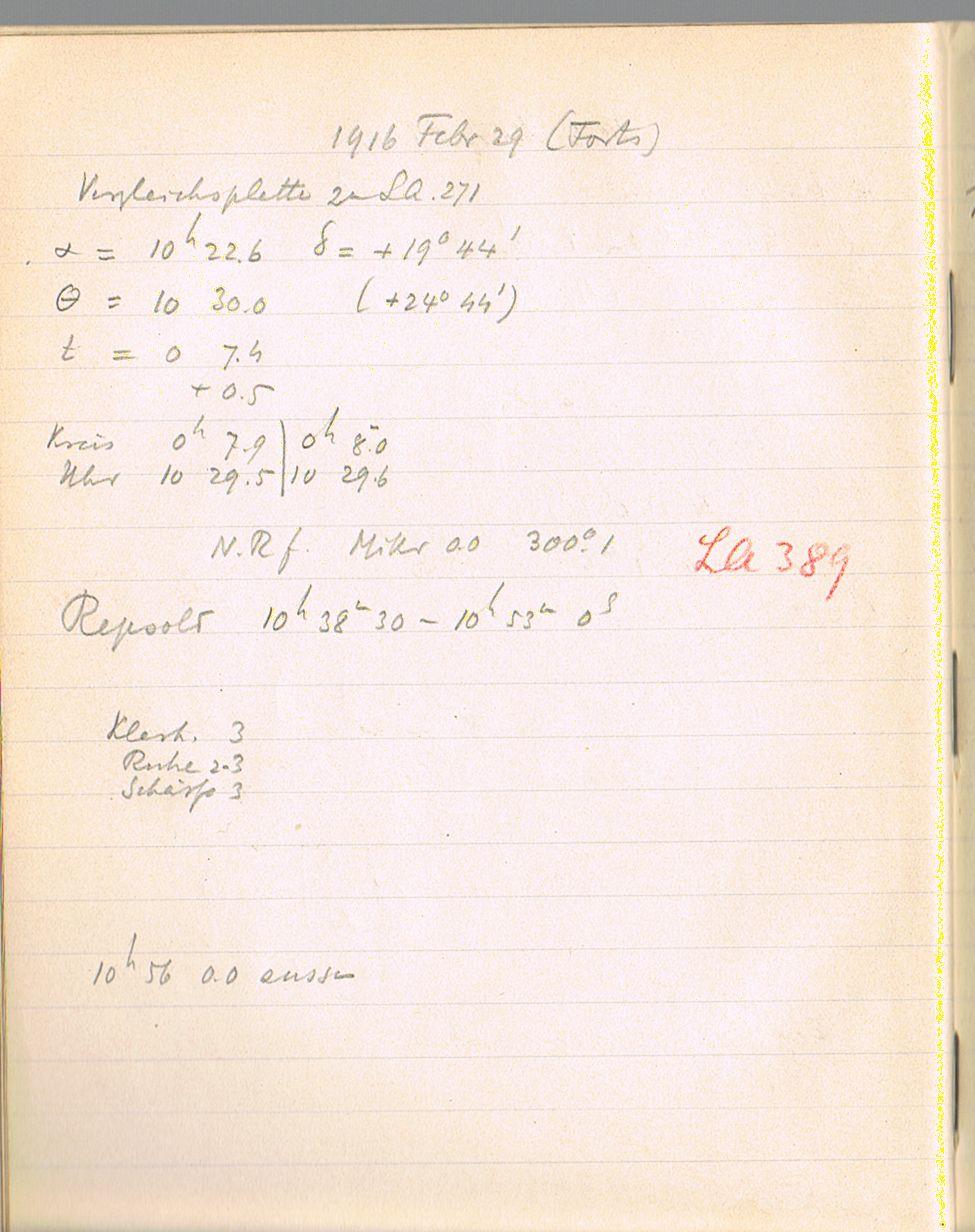 1916 Febr 29 (Forts)
Vergleichsplatte zu La. 271
α = 10ʰ 22.6 δ = +19° 44'
θ = 10 30.0 (+24° 44')
t = 0 7.4
+ 0.5
Kreis 0ʰ 7.9 | 0ʰ 8.0
Uhr 10 29.5 | 10 29.6
N. R f. Mikr 0.0 300°.1
La 389
Repsold 10ʰ 38ᵐ 30 – 10ʰ 53ᵐ 0ˢ
Klarh. 3
Ruhe 2-3
Schärfe 3
10ʰ 56 0.0 aussen